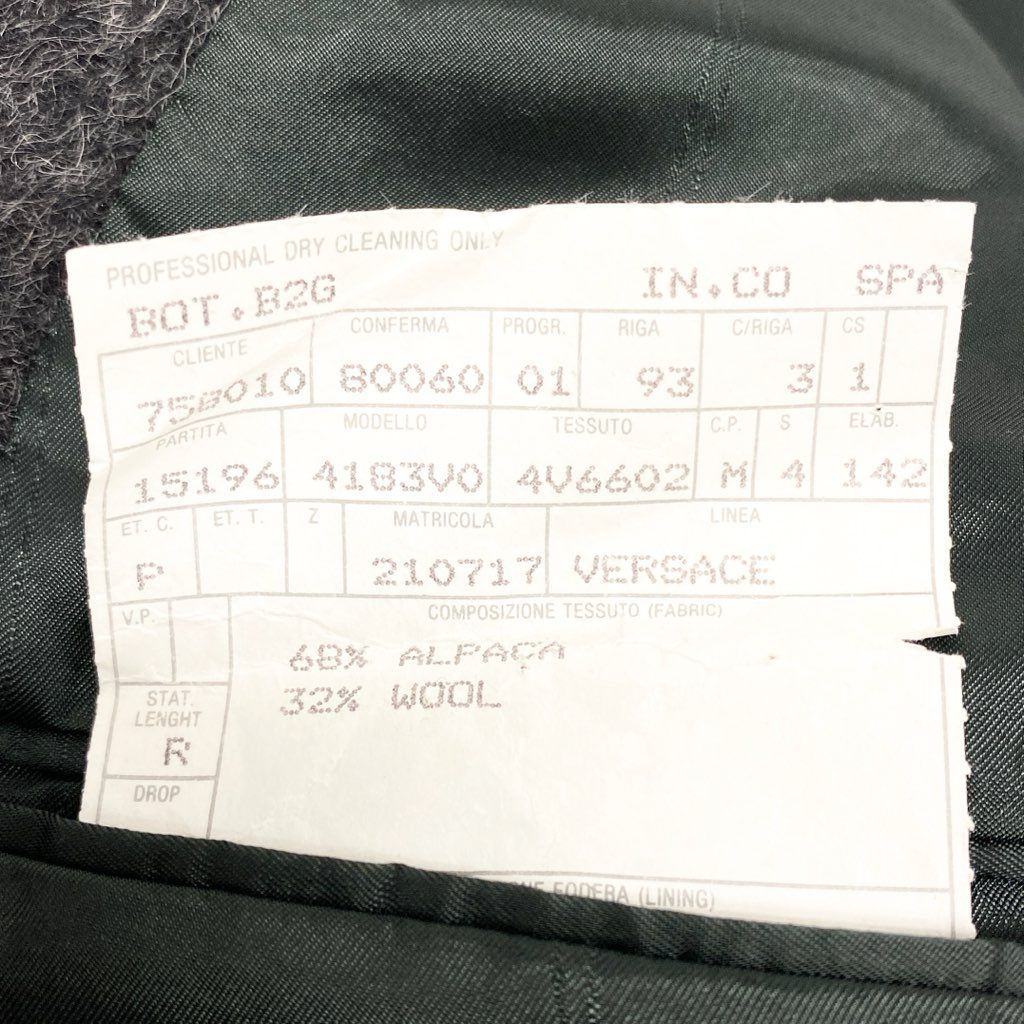 PROFESSIONAL DRY CLEANING ONLY
BOT.B2G IN.CO SPA
CLIENTE CONFERMA PROGR. RIGA C/RIGA CS
758010 80060 01 93 3 1
PARTITA MODELLO TESSUTO C.P. S ELAB.
15196 4183V0 4V6602 M 4 142
ET. C. ET. T. Z MATRICOLA LINEA
P 210717 VERSACE
V.P. COMPOSIZIONE TESSUTO (FABRIC)
68% ALPACA
32% WOOL
STAT.
LENGHT
R
DROP
FODERA (LINING)